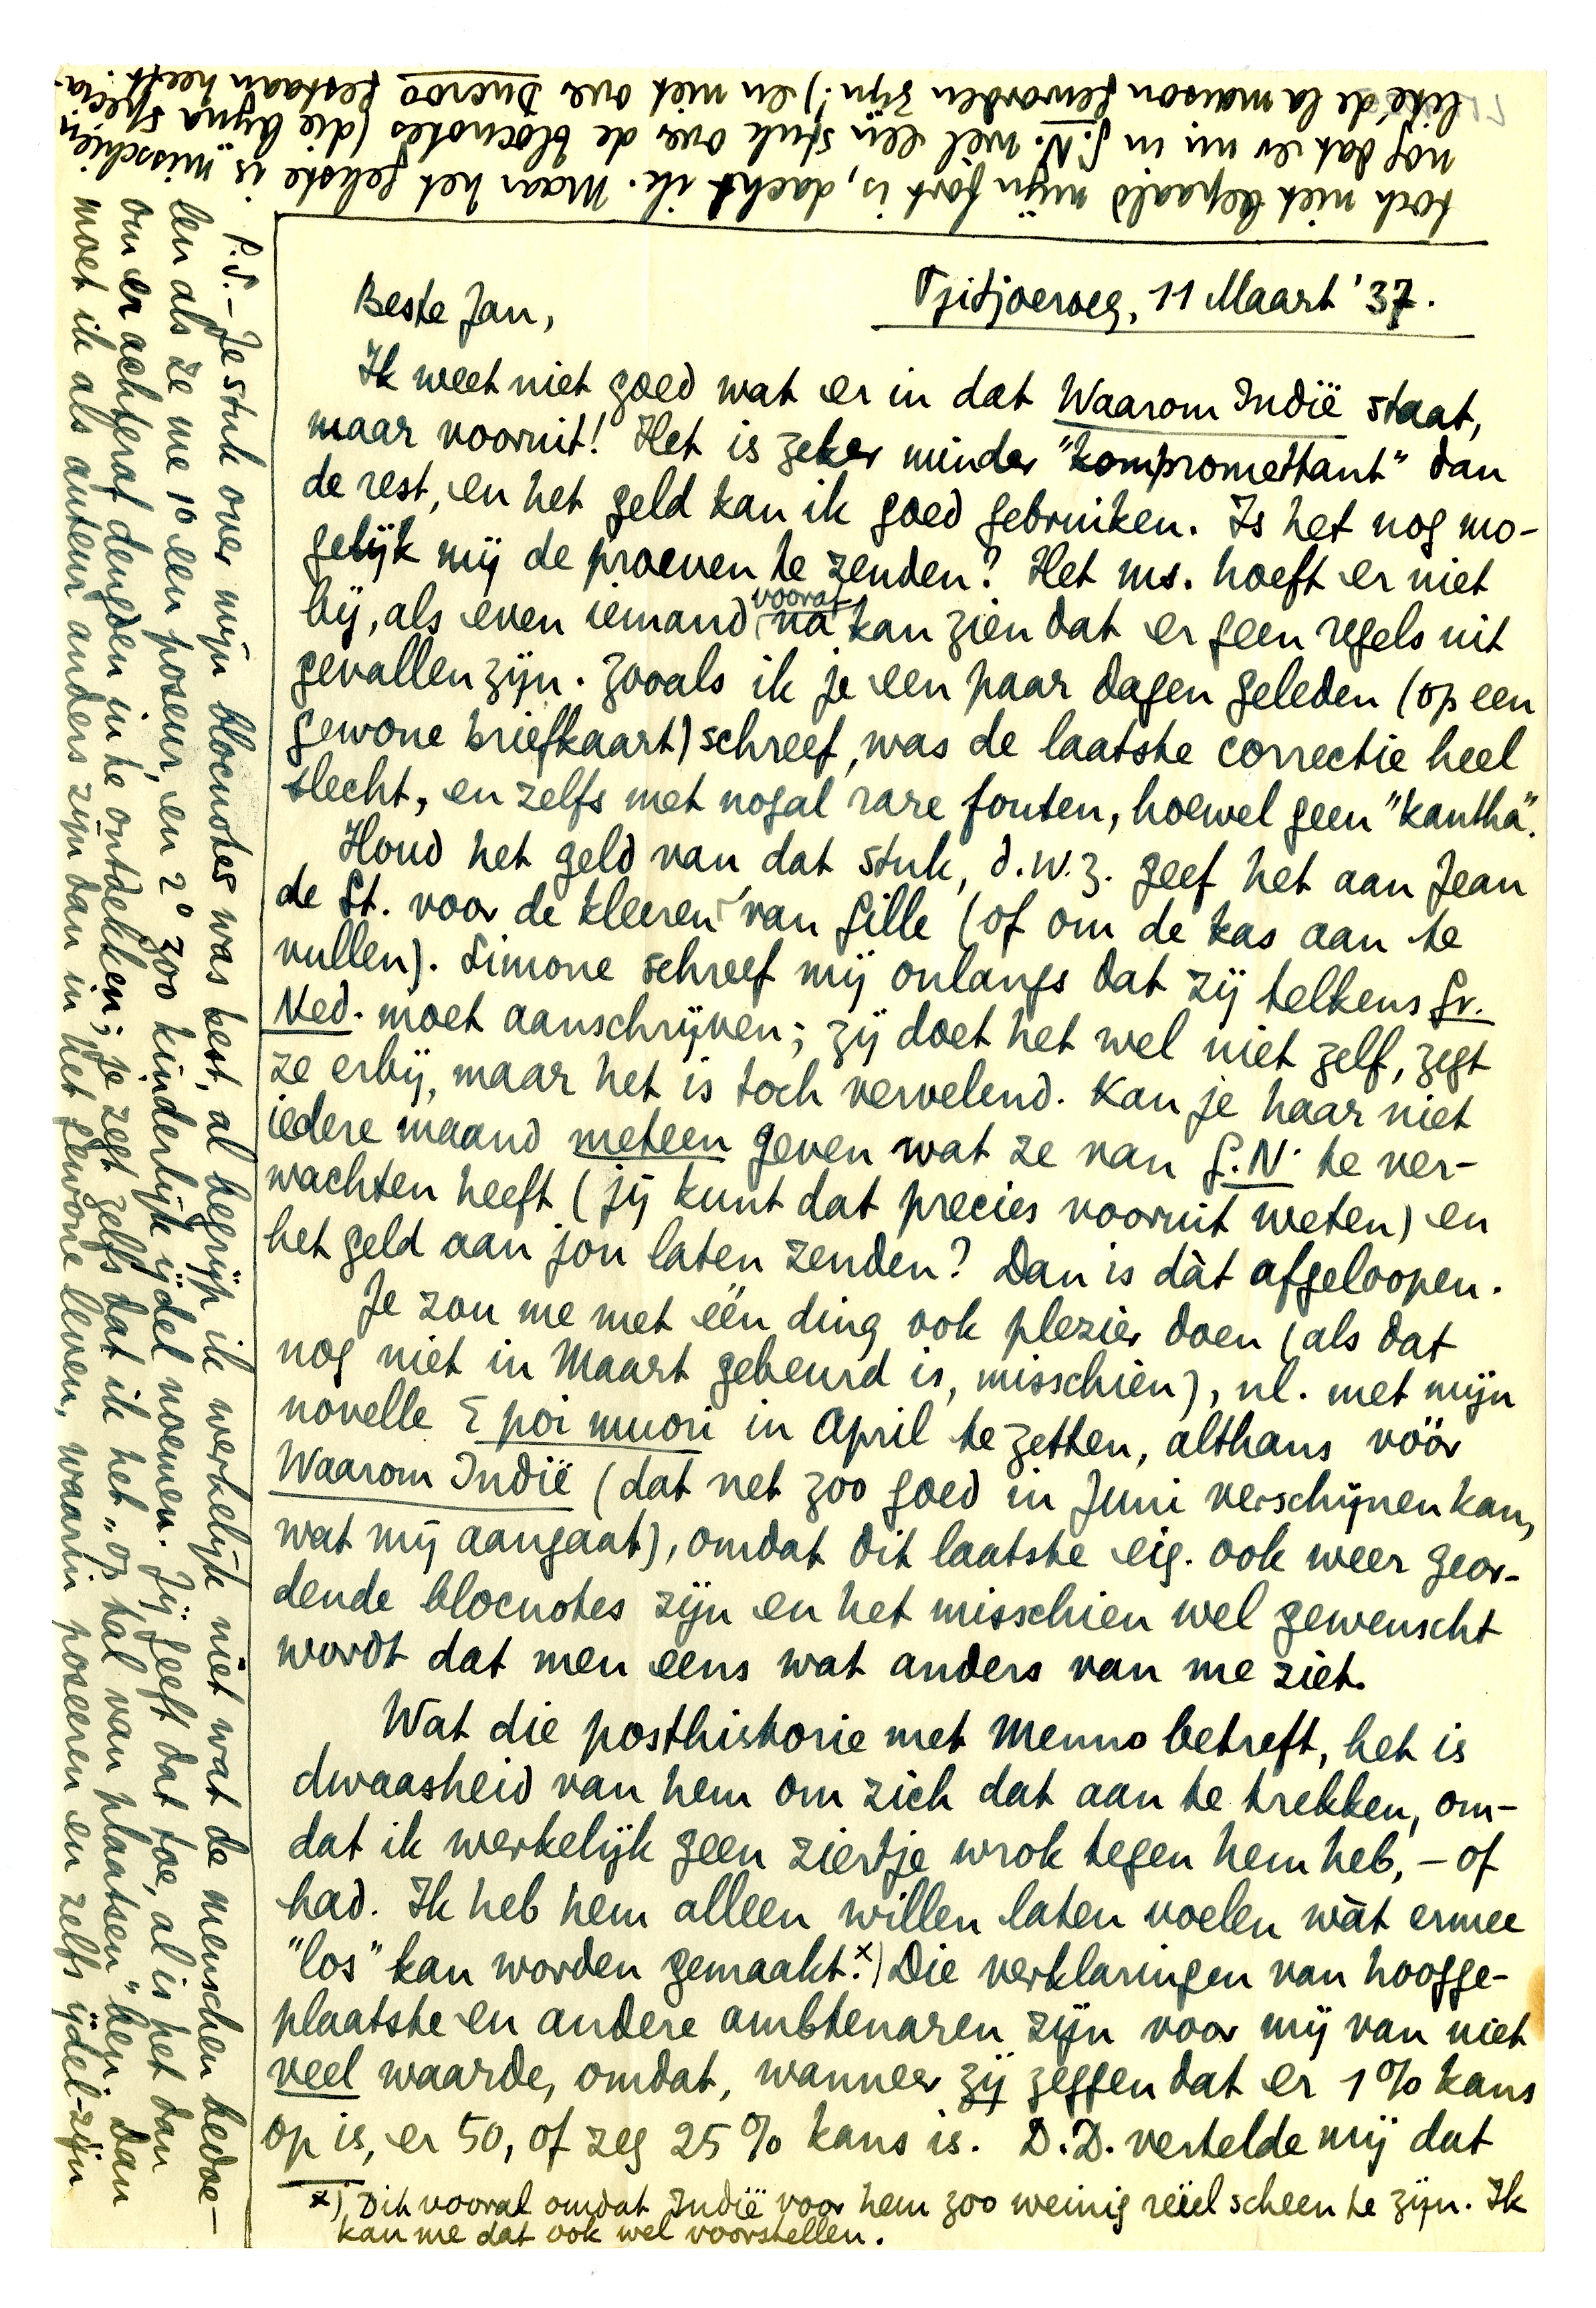 Tjitjoeroeg, 11 Maart '37.
Beste Jan,
Ik weet niet goed wat er in dat Waarom Indië staat,
maar vooruit! Het is zeker minder "kompromettant" dan
de rest, en het geld kan ik goed gebruiken. Is het nog mo-
gelijk mij de proeven te zenden? Het ms. hoeft er niet
bij, als even iemand vooraf na kan zien dat er geen regels uit
gevallen zijn. Zooals ik je een paar dagen geleden (op een
gewone briefkaart) schreef, was de laatste correctie heel
slecht, en zelfs met nogal rare fouten, hoewel geen "kantha".
Houd het geld van dat stuk, d.w.z. geef het aan Jean
de St. voor de kleeren van Gille (of om de kas aan te
vullen). Simone schreef mij onlangs dat zij telkens Gr.
Ned. moet aanschrijven; zij doet het wel niet zelf, zegt
ze erbij, maar het is toch vervelend. Kan je haar niet
iedere maand meteen geven wat ze van G.N. te ver-
wachten heeft (jij kunt dat precies vooruit weten) en
het geld aan jou laten zenden? Dan is dàt afgeloopen.
Je zou me met één ding ook plezier doen (als dat
nog niet in Maart gebeurd is, misschien), nl. met mijn
novelle E poi muori in April te zetten, althans vóór
Waarom Indië (dat net zoo goed in Juni verschijnen kan,
wat mij aangaat), omdat dit laatste eig. ook weer geor-
dende blocnotes zijn en het misschien wel gewenscht
wordt dat men eens wat anders van me ziet.
Wat die posthistorie met Menno betreft, het is
dwaasheid van hem om zich dat aan te trekken, om-
dat ik werkelijk geen ziertje wrok tegen hem heb, - of
had. Ik heb hem alleen willen laten voelen wàt ermee
"los" kan worden gemaakt.x) Die verklaringen van hoogge-
plaatste en andere ambtenaren zijn voor mij van niet
veel waarde, omdat, wanneer zij zeggen dat er 1% kans
op is, er 50, of zeg 25% kans is. D.D. vertelde mij dat
x) Dit vooral omdat Indië voor hem zoo weinig reëel scheen te zijn. Ik
kan me dat ook wel voorstellen.
P.S. - Je stuk over mijn blocnotes was best, al begrijp ik werkelijk niet wat de menschen bedoe-
len als ze me 1o een poseur, en 2o zoo kinderlijk ijdel noemen. Jij geeft dat toe, al is het dan
om er achteraf deugden in te ontdekken; je zegt zelfs dat ik het "op tal van plaatsen" ben. Dan
moet ik als auteur anders zijn dan in het gewone leven, waarin poseeren en zelfs ijdel-zijn
toch niet bepaald mijn fort is, dacht ik. Maar het gekste is misschien
nog dat er nu in G.N. wel een stuk over de blocnotes (die bijna specia-
lité de la maison geworden zijn!) en niet over Ducroo gestaan heeft.